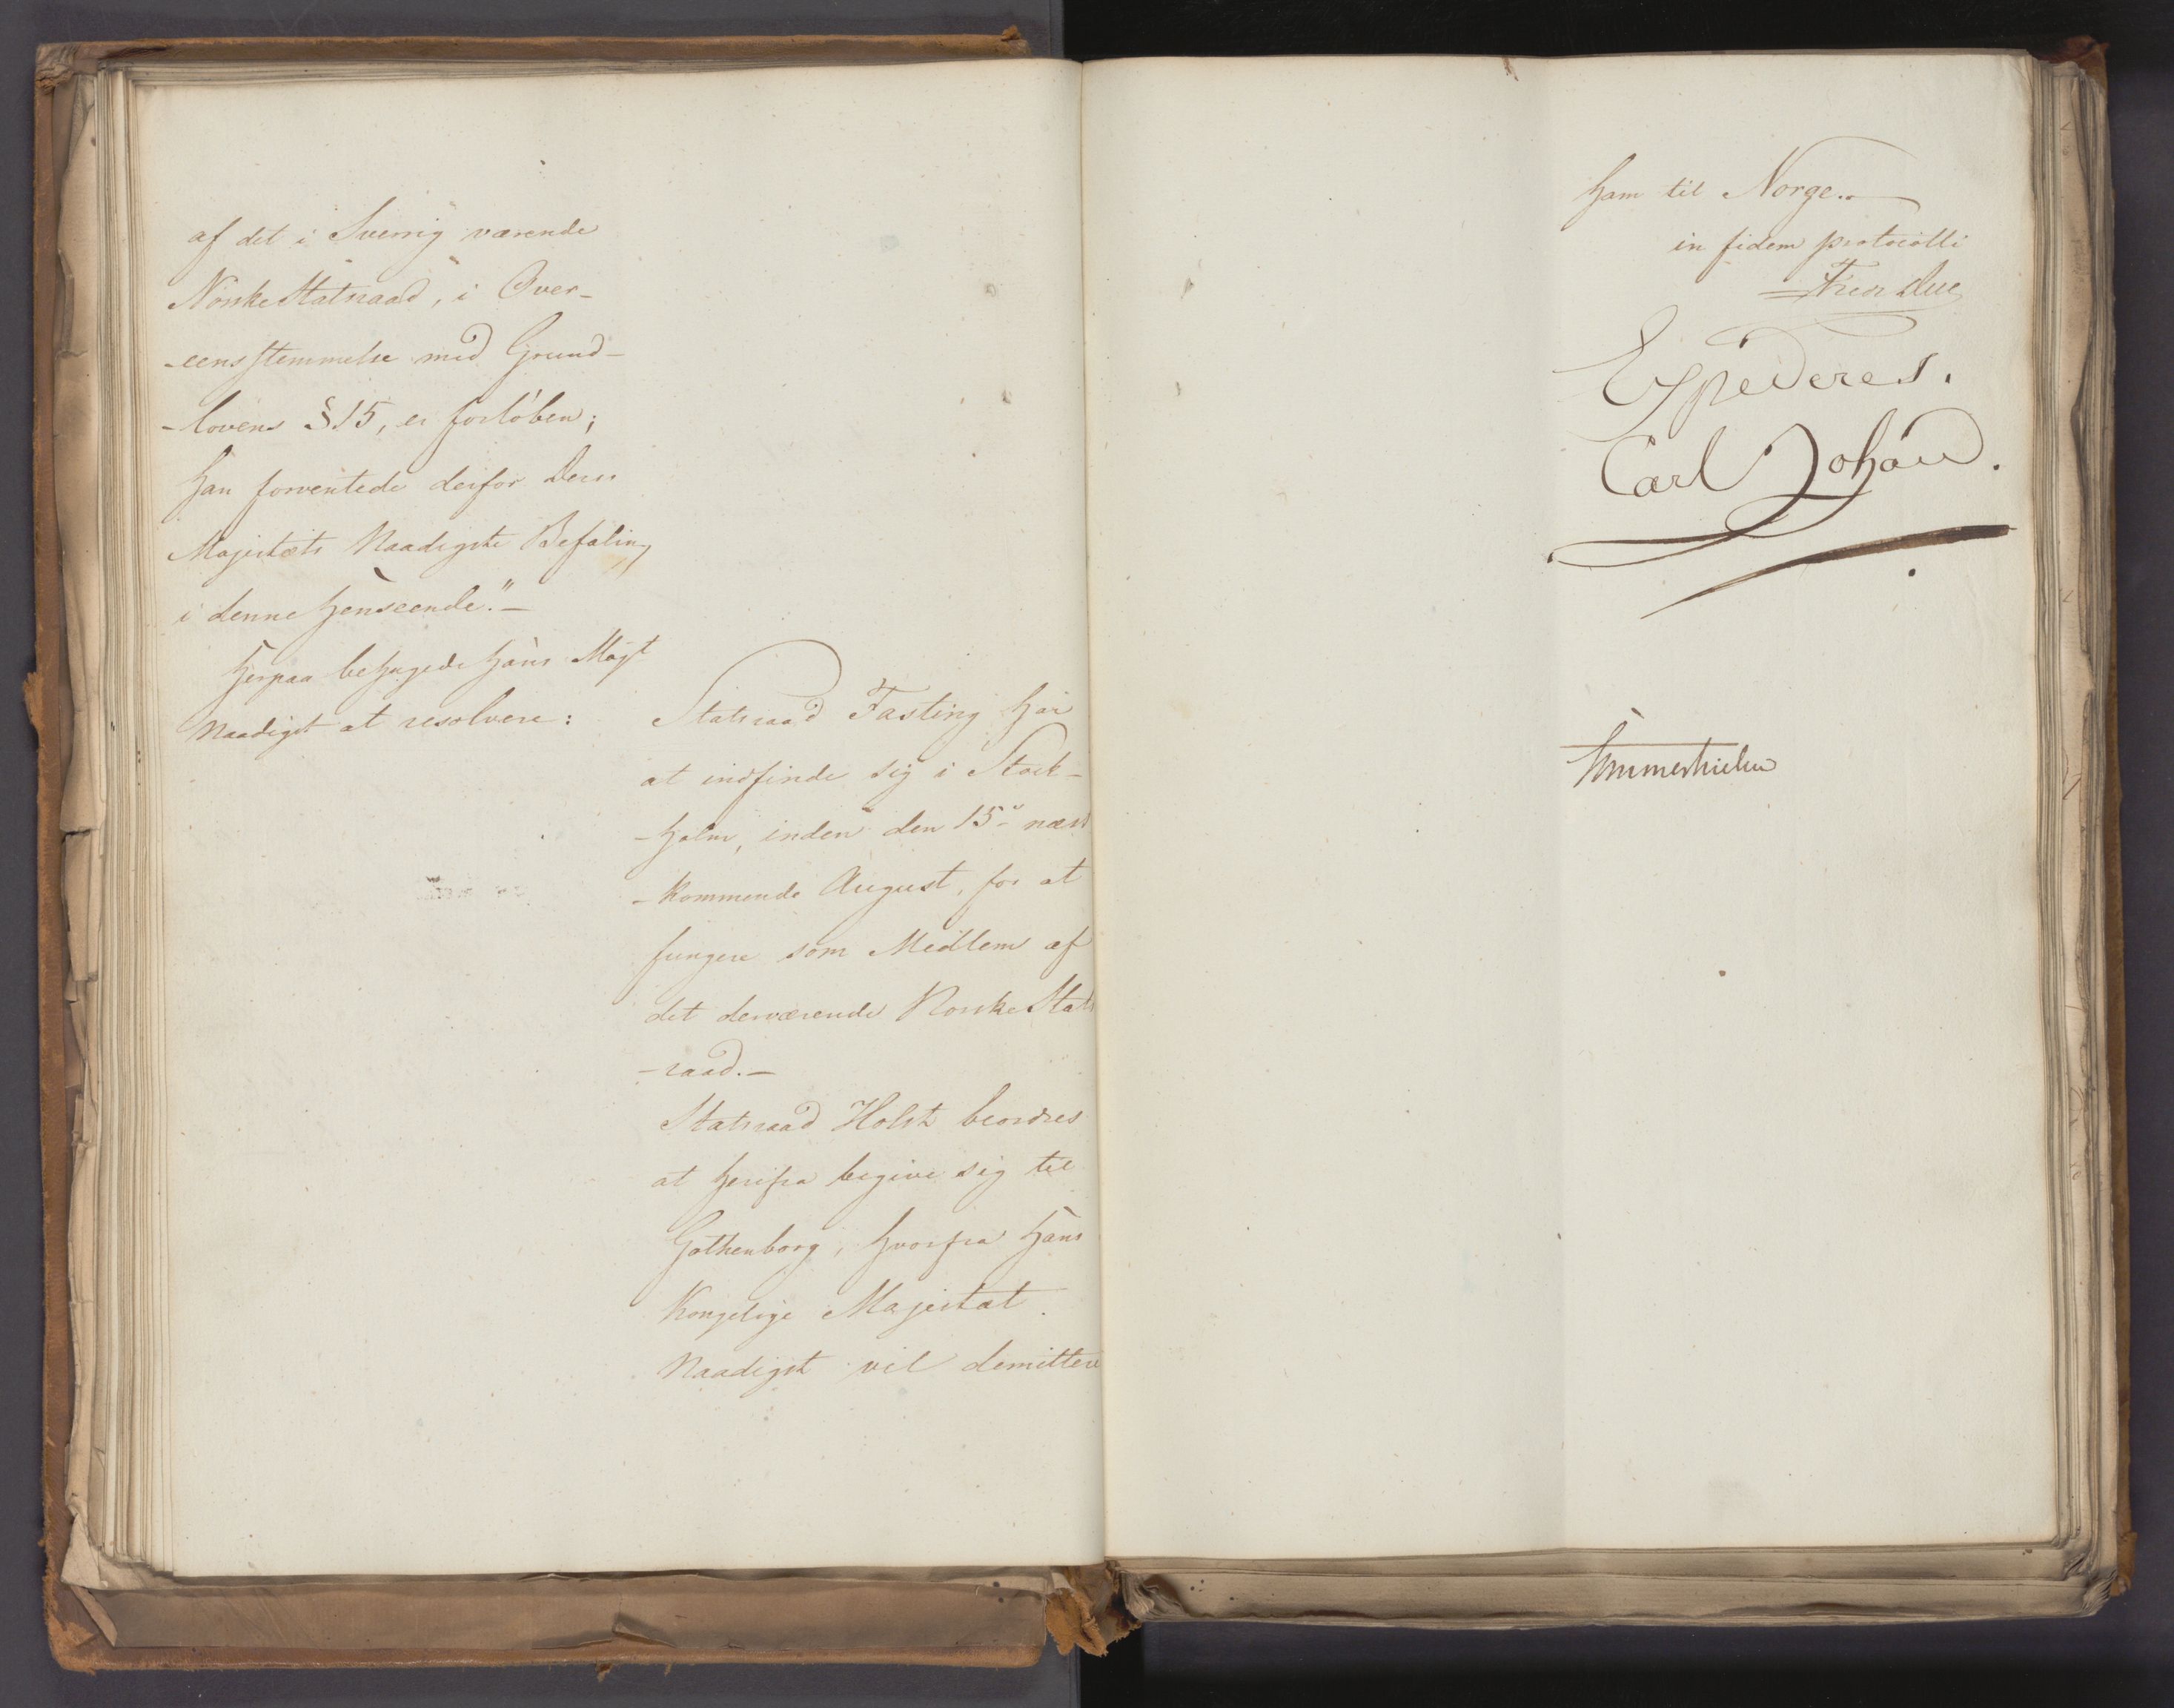 af det i Sverrig værende
Norske Statsraad, i Over-
-eensstemmelse med Grund-
-lovens § 15, er forløben;
han forventede derfor Deres
Majestæts Naadigste Befaling
i denne Henseende."-
Herpaa behagede Hans Majt
Naadigst at resolvere:
Statsraad Fasting har
at indfinde sig i Stock-
-holm, inden den 15de næst
-kommende August, for at
fungere som Medlem af
det derværende Norske Stats
-raad.-
Statsraad Holst beordres
at herifra begive sig til
Gothenborg, hvorfra Hans
Kongelige Majestæt
Naadigst vil demittere
ham til Norge.
in fidem protocolli
Due
Expederes.
Carl Johan.
Sommerhielm